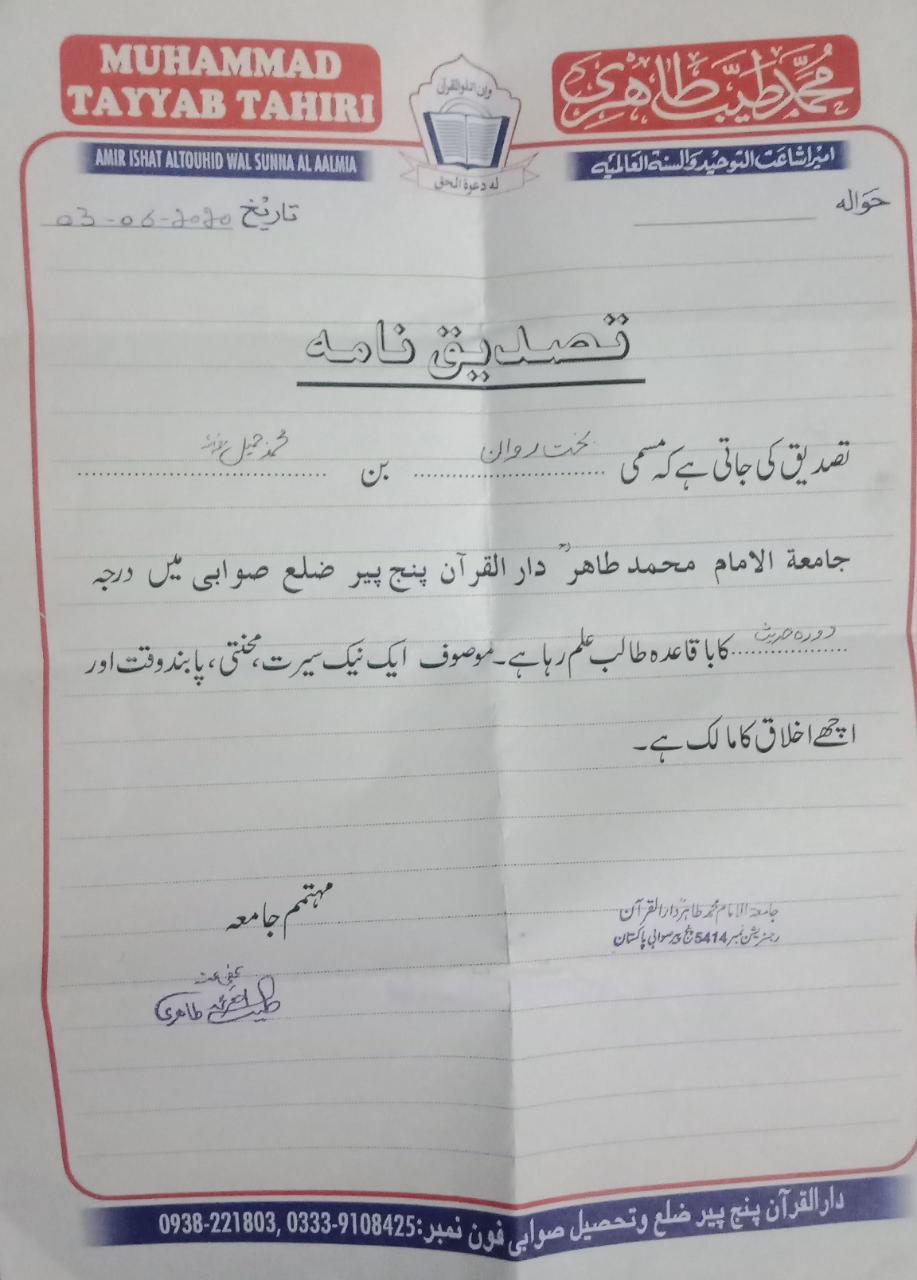 MUHAMMAD
TAYYAB TAHIRI
محمد طیب طاہری
وان اتلو القرآن
له دعوة الحق
AMIR ISHAT ALTOUHID WAL SUNNA AL AALMIA
امیر اشاعت التوحید والسنۃ العالمیہ
حوالہ
تاریخ 03-06-2020
تصدیق نامہ
تصدیق کی جاتی ہے کہ مسمی بخت روان بن محمد جمیل
جامعة الامام محمد طاہرؒ دار القرآن پنج پیر ضلع صوابی میں درجہ
دورہ حدیث کا باقاعدہ طالب علم رہا ہے۔ موصوف ایک نیک سیرت، محنتی، پابند وقت اور
اچھے اخلاق کا مالک ہے۔
مہتمم جامعہ
جامعۃ الامام محمد طاہرؒ دار القرآن
رجسٹریشن نمبر 5414 پنج پیر صوابی پاکستان
طیب طاہری
دار القرآن پنج پیر ضلع وتحصیل صوابی فون نمبر: 0333-9108425 ,0938-221803